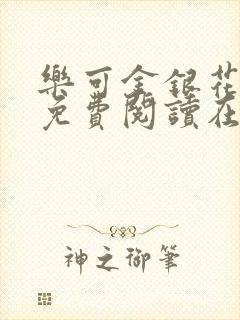 樂可金銀花
免費閱讀在
神之御筆